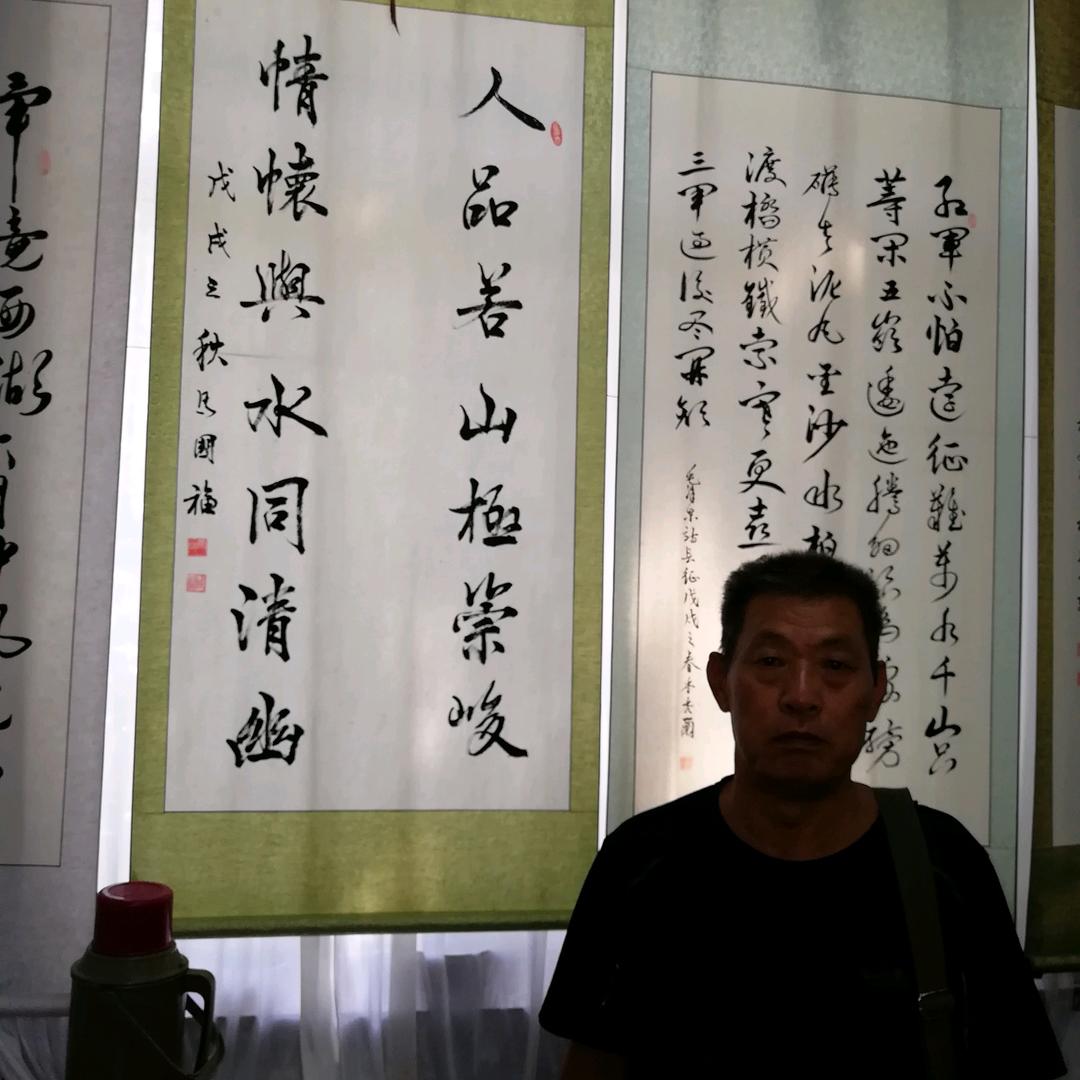 紅軍不怕遠征難萬水千山只
等閑五嶺逶迤騰細浪烏蒙磅
礴走泥丸金沙水拍
渡橋橫鐵索寒更喜
三軍過後尽開顏
毛澤東詩長征戊戌之春
人品若山極崇峻
情懷與水同清幽
戊戌之秋國福
畢竟西湖六月中風光